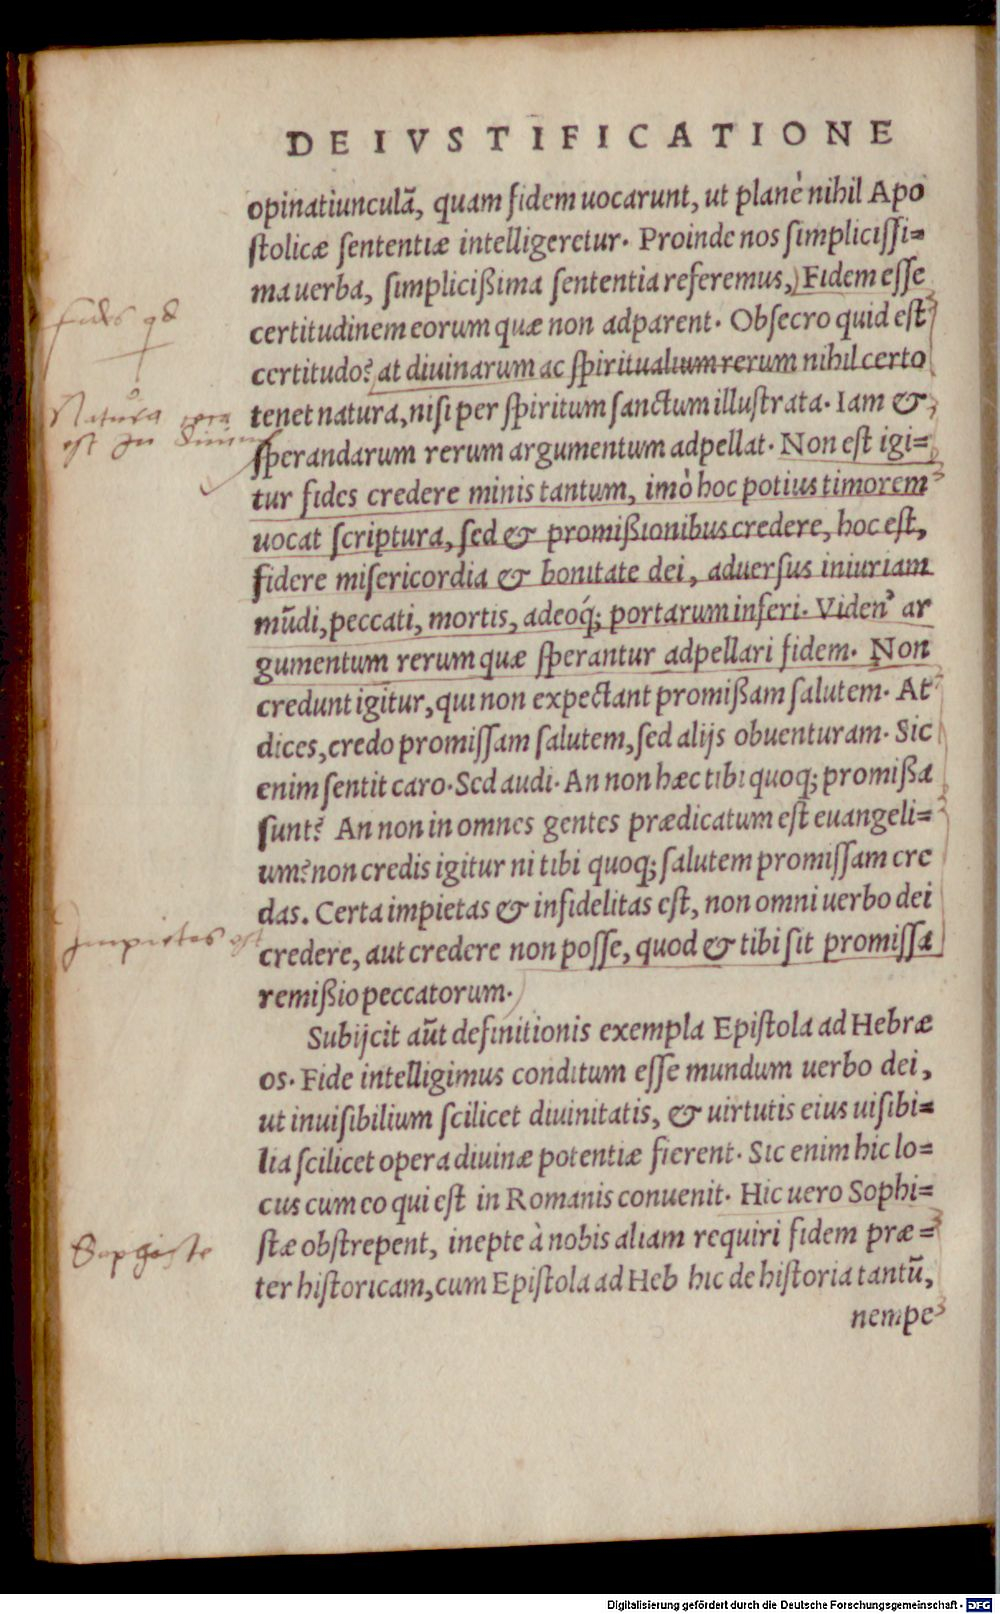 DE IVSTIFICATIONE
opinatiunculã, quam fidem uocarunt, ut planè nihil Apo
ſtolicæ ſententiæ intelligeretur. Proinde nos ſimpliciſſi=
ma uerba, ſimplicißima ſententia referemus, Fidem eſſe
fides qd
certitudinem eorum quæ non adparent. Obſecro quid eſt
certitudo? at diuinarum ac ſpiritualium rerum nihil certo
Natura
tenet natura, niſi per ſpiritum ſanctum illuſtrata. Iam &
est In
ſperandarum rerum argumentum adpellat. Non eſt igi=
tur fides credere minis tantum, imò hoc potius timorem
uocat ſcriptura, ſed & promißionibus credere, hoc eſt,
fidere miſericordia & bonitate dei, aduerſus iniuriam
mũdi, peccati, mortis, adeoq́; portarum inferi. Viden' ar
gumentum rerum quæ ſperantur adpellari fidem. Non
credunt igitur, qui non expectant promißam ſalutem. At
dices, credo promiſſam ſalutem, ſed alijs obuenturam. Sic
enim ſentit caro. Sed audi. An non hæc tibi quoq; promißa
ſunt? An non in omnes gentes prædicatum eſt euangeli=
um? non credis igitur ni tibi quoq; ſalutem promiſſam cre
das. Certa impietas & infidelitas eſt, non omni uerbo dei
Impietas est
credere, aut credere non poſſe, quod & tibi ſit promiſſa
remißio peccatorum.
Subijcit aũt definitionis exempla Epiſtola ad Hebræ
os. Fide intelligimus conditum eſſe mundum uerbo dei,
ut inuiſibilium ſcilicet diuinitatis, & uirtutis eius uiſibi=
lia ſcilicet opera diuinæ potentiæ fierent. Sic enim hic lo=
cus cum eo qui eſt in Romanis conuenit. Hic uero Sophi=
Sophiste
ſtæ obſtrepent, inepte à nobis aliam requiri fidem præ=
ter hiſtoricam, cum Epiſtola ad Heb hic de hiſtoria tantũ,
nempe
Digitalisierung gefördert durch die Deutsche Forschungsgemeinschaft - DFG